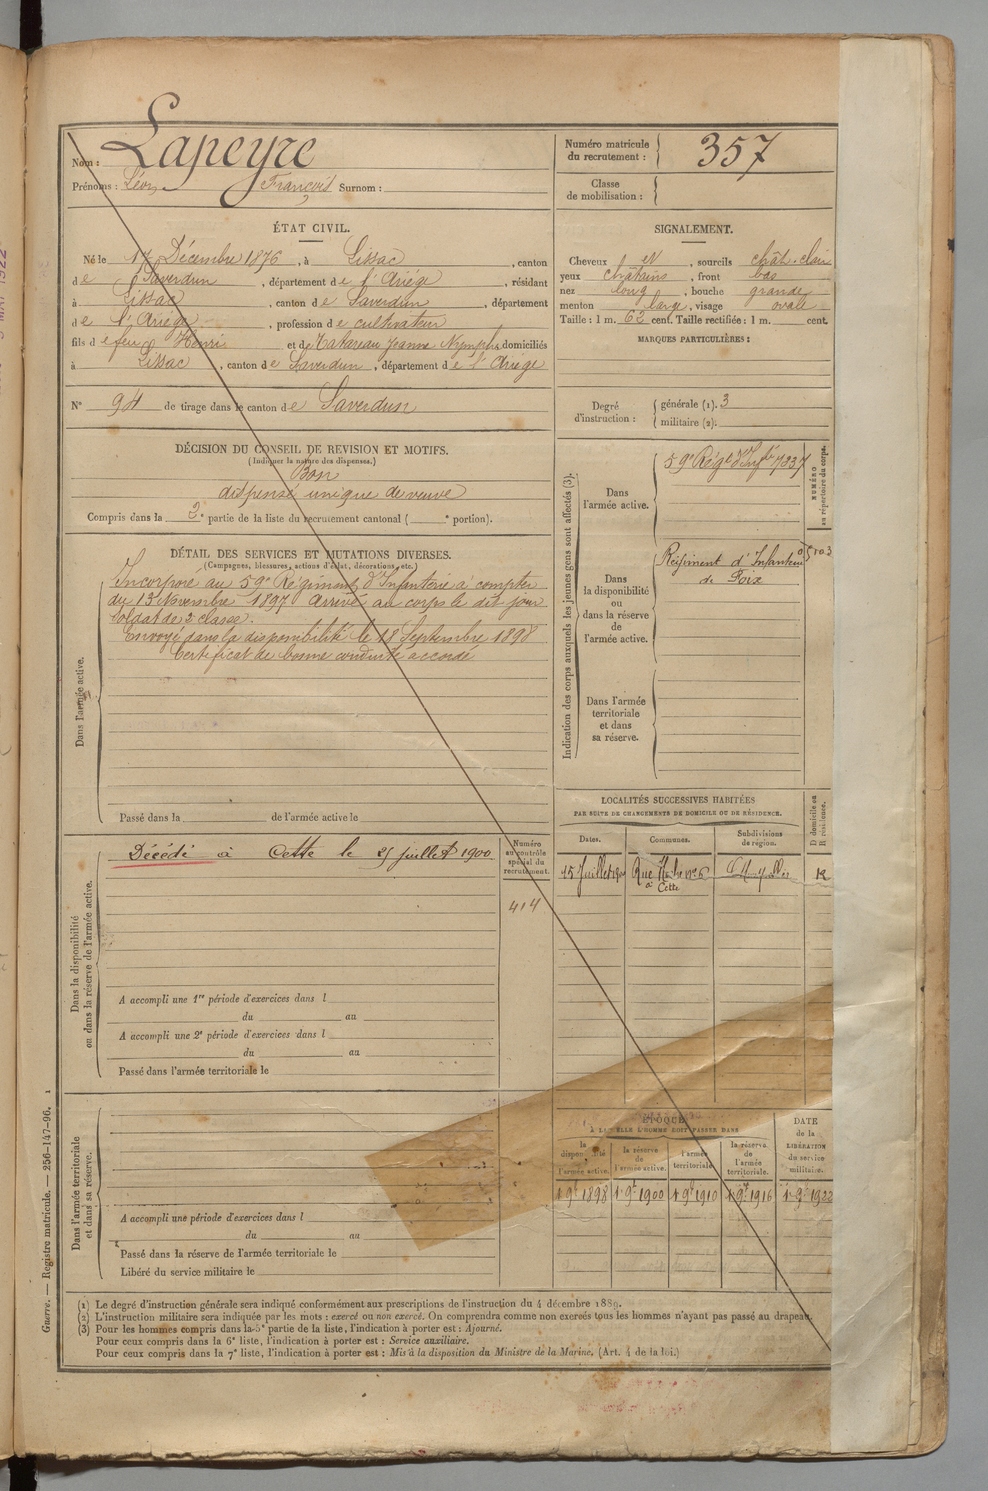 Nom : Lapeyre
Prénoms : Léon François Surnom :
Numéro matricule du recrutement : 357
Classe de mobilisation :
ÉTAT CIVIL.
Né le 17 Décembre 1876, à Lissac, canton
de Saverdun, département de l'Ariége, résidant
à Lissac, canton de Saverdun, département
de l'Ariége, profession de cultivateur
fils de feu Henri et de Jeanne Nymphe, domiciliés
à Lissac, canton de Saverdun, département de l'Ariége
N° de tirage dans le canton de Saverdun
SIGNALEMENT.
Cheveux , sourcils chât. clair
yeux chatains, front bas
nez long, bouche grande
menton large, visage ovale
Taille : 1 m. 62 cent. Taille rectifiée : 1 m. cent.
MARQUES PARTICULIÈRES :
Degré d'instruction : générale (1). 3
militaire (2).
DÉCISION DU CONSEIL DE REVISION ET MOTIFS.
(Indiquer la nature des dispenses.)
Bon
dispensé unique de veuve
Compris dans la 2e partie de la liste du recrutement cantonal ( e portion).
DÉTAIL DES SERVICES ET MUTATIONS DIVERSES.
(Campagnes, blessures, actions d'éclat, décorations, etc.)
Dans l'armée active.
Incorporé au 59e Régiment d'Infanterie à compter
du 13 Novembre 1897 Arrivé au corps le dit jour
soldat de 2e classe.
Envoyé dans la disponibilité le 18 Septembre 1898
Certificat de bonne conduite accordé
Passé dans la de l'armée active le
Indication des corps auxquels les jeunes gens sont affectés (3).
NUMÉRO au répertoire du corps.
Dans l'armée active.
59e Régt d'Infrie 7337
Dans la disponibilité ou dans la réserve de l'armée active.
Régiment d'Infanterie
de Foix
Dans l'armée territoriale et dans sa réserve.
LOCALITÉS SUCCESSIVES HABITÉES
PAR SUITE DE CHANGEMENTS DE DOMICILE OU DE RÉSIDENCE.
D domicile ou R résidence.
Dates. Communes. Subdivisions de région.
15 Juillet Rue n° 6 R
à Cette
Dans la disponibilité ou dans la réserve de l'armée active.
Décédé à Cette le 25 juillet 1900
Numéro au contrôle spécial du recrutement.
414
A accompli une 1re période d'exercices dans l
du au
A accompli une 2e période d'exercices dans l
du au
Passé dans l'armée territoriale le
Dans l'armée territoriale et dans sa réserve.
A accompli une période d'exercices dans l
du au
Passé dans la réserve de l'armée territoriale le
Libéré du service militaire le
ÉPOQUE
À LAQUELLE L'HOMME DOIT PASSER DANS
la disponibilité de l'armée active.
la réserve de l'armée active.
l'armée territoriale.
la réserve de l'armée territoriale.
DATE de la LIBÉRATION du service militaire.
1 9e 1898 1 9e 1900 1 9e 1910 1 9e 1916 1 9e 1922
(1) Le degré d'instruction générale sera indiqué conformément aux prescriptions de l'instruction du 4 décembre 1889.
(2) L'instruction militaire sera indiquée par les mots : exercé ou non exercé. On comprendra comme non exercés tous les hommes n'ayant pas passé au drapeau.
(3) Pour les hommes compris dans la 5e partie de la liste, l'indication à porter est : Ajourné.
Pour ceux compris dans la 6e liste, l'indication à porter est : Service auxiliaire.
Pour ceux compris dans la 7e liste, l'indication à porter est : Mis à la disposition du Ministre de la Marine. (Art. 4 de la loi.)
Guerre. — Registre matricule. — 256-147-96. 1